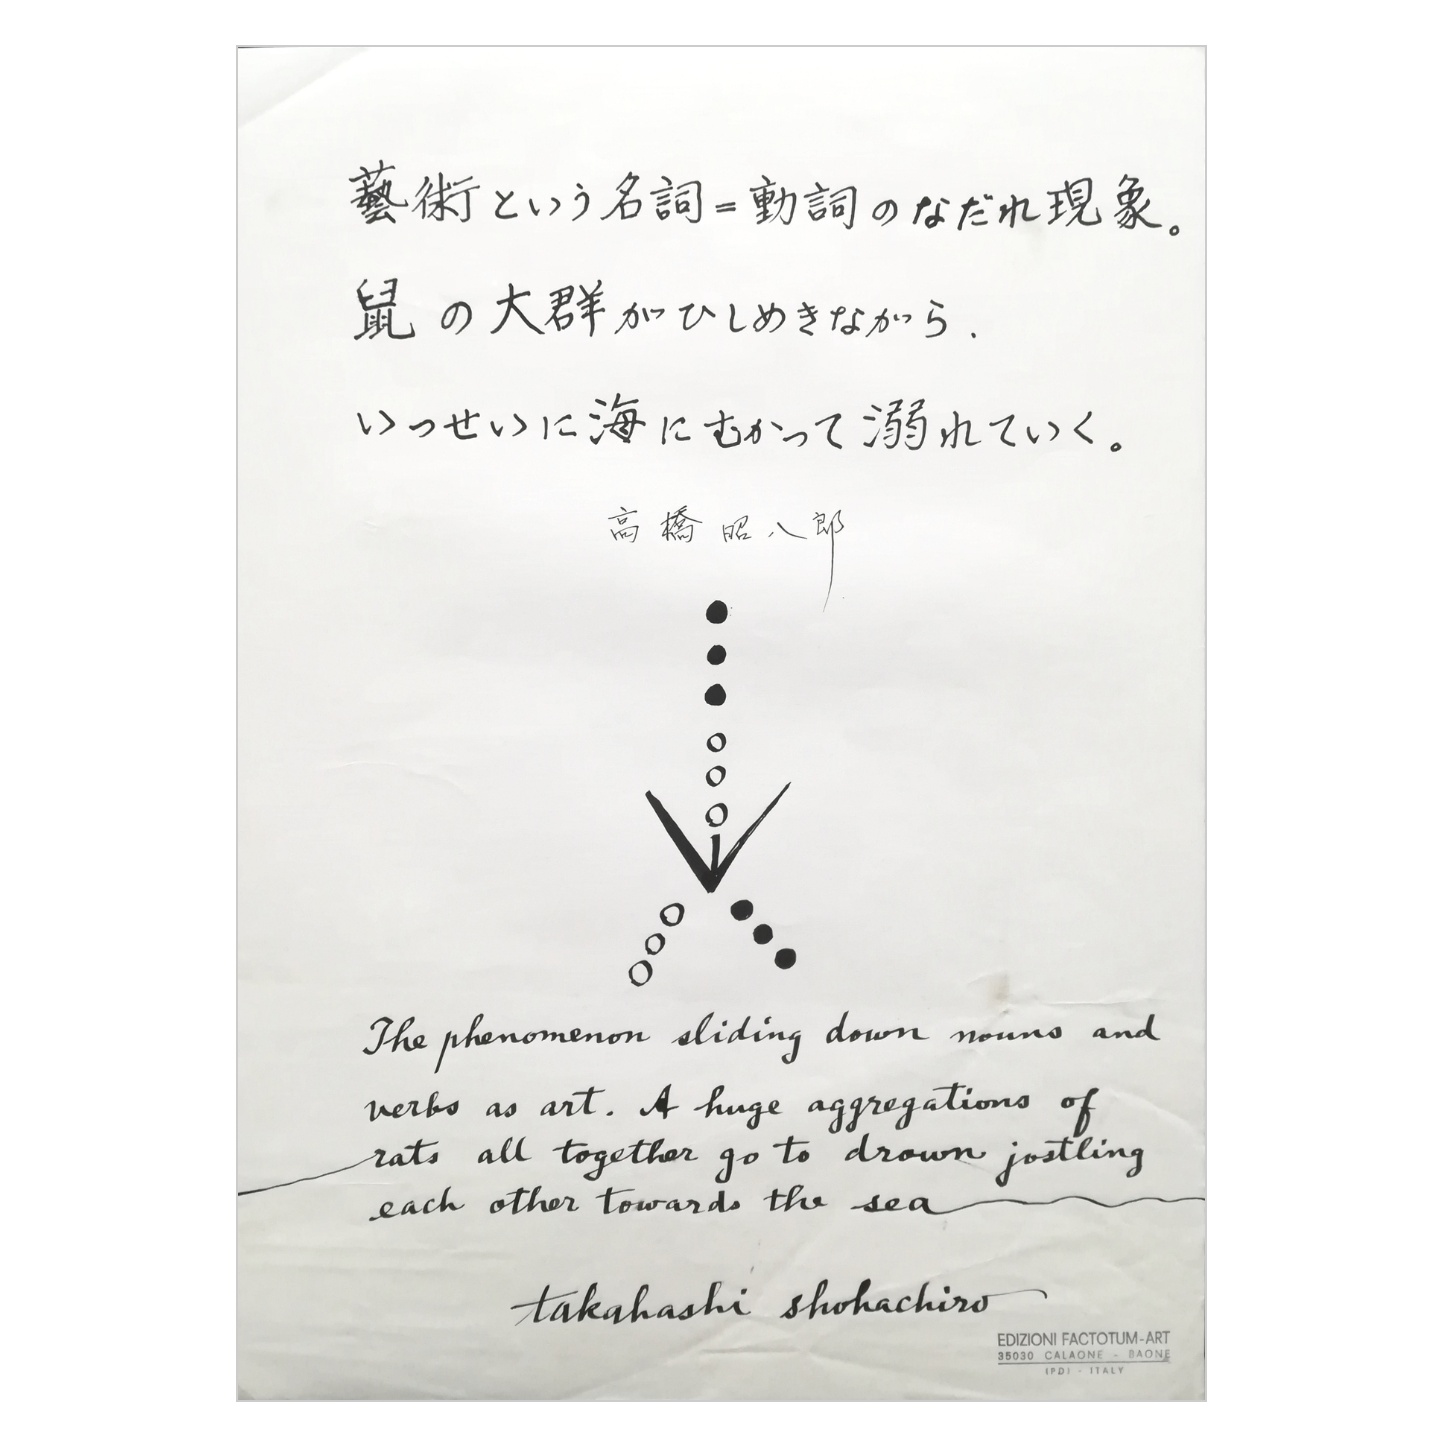 藝術という名詞=動詞のなだれ現象。
鼠の大群がひしめきながら.
いっせいに海にむかって溺れていく。
高橋昭八郎
The phenomenon sliding down nouns and
verbs as art. A huge aggregations of
rats all together go to drown jostling
each other towards the sea
takahashi shohachiro
EDIZIONI FACTOTUM-ART
35030 CALAONE - BAONE
(PD) - ITALY